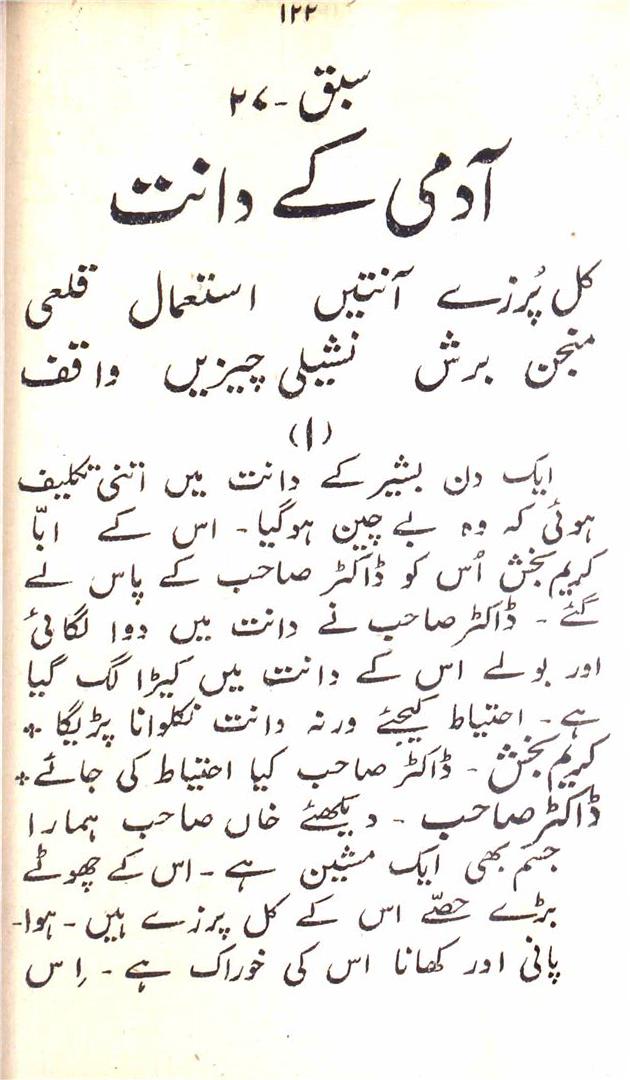 ۱۲۲
سبق - ۲۷
آدمی کے دانت
کل پُرزے آنتیں استعمال قلعی
منجن برش نشیلی چیزیں واقف
(۱)
ایک دن بشیر کے دانت میں اتنی تکلیف
ہوئی کہ وہ بے چین ہوگیا۔ اس کے ابّا
کریم بخش اُس کو ڈاکٹر صاحب کے پاس لے
گئے ۔ ڈاکٹر صاحب نے دانت میں دوا لگائی
اور بولے اس کے دانت میں کیڑا لگ گیا
ہے ۔ احتیاط کیجئے ورنہ دانت نکلوانا پڑیگا ٭
کریم بخش ۔ ڈاکٹر صاحب کیا احتیاط کی جائے ٭
ڈاکٹر صاحب ۔ دیکھئے خاں صاحب ہمارا
جسم بھی ایک مشین ہے ۔ اس کے چھوٹے
بڑے حصّے اس کے کل پرزے ہیں ۔ ہوا۔
پانی اور کھانا اس کی خوراک ہے ۔ اِس